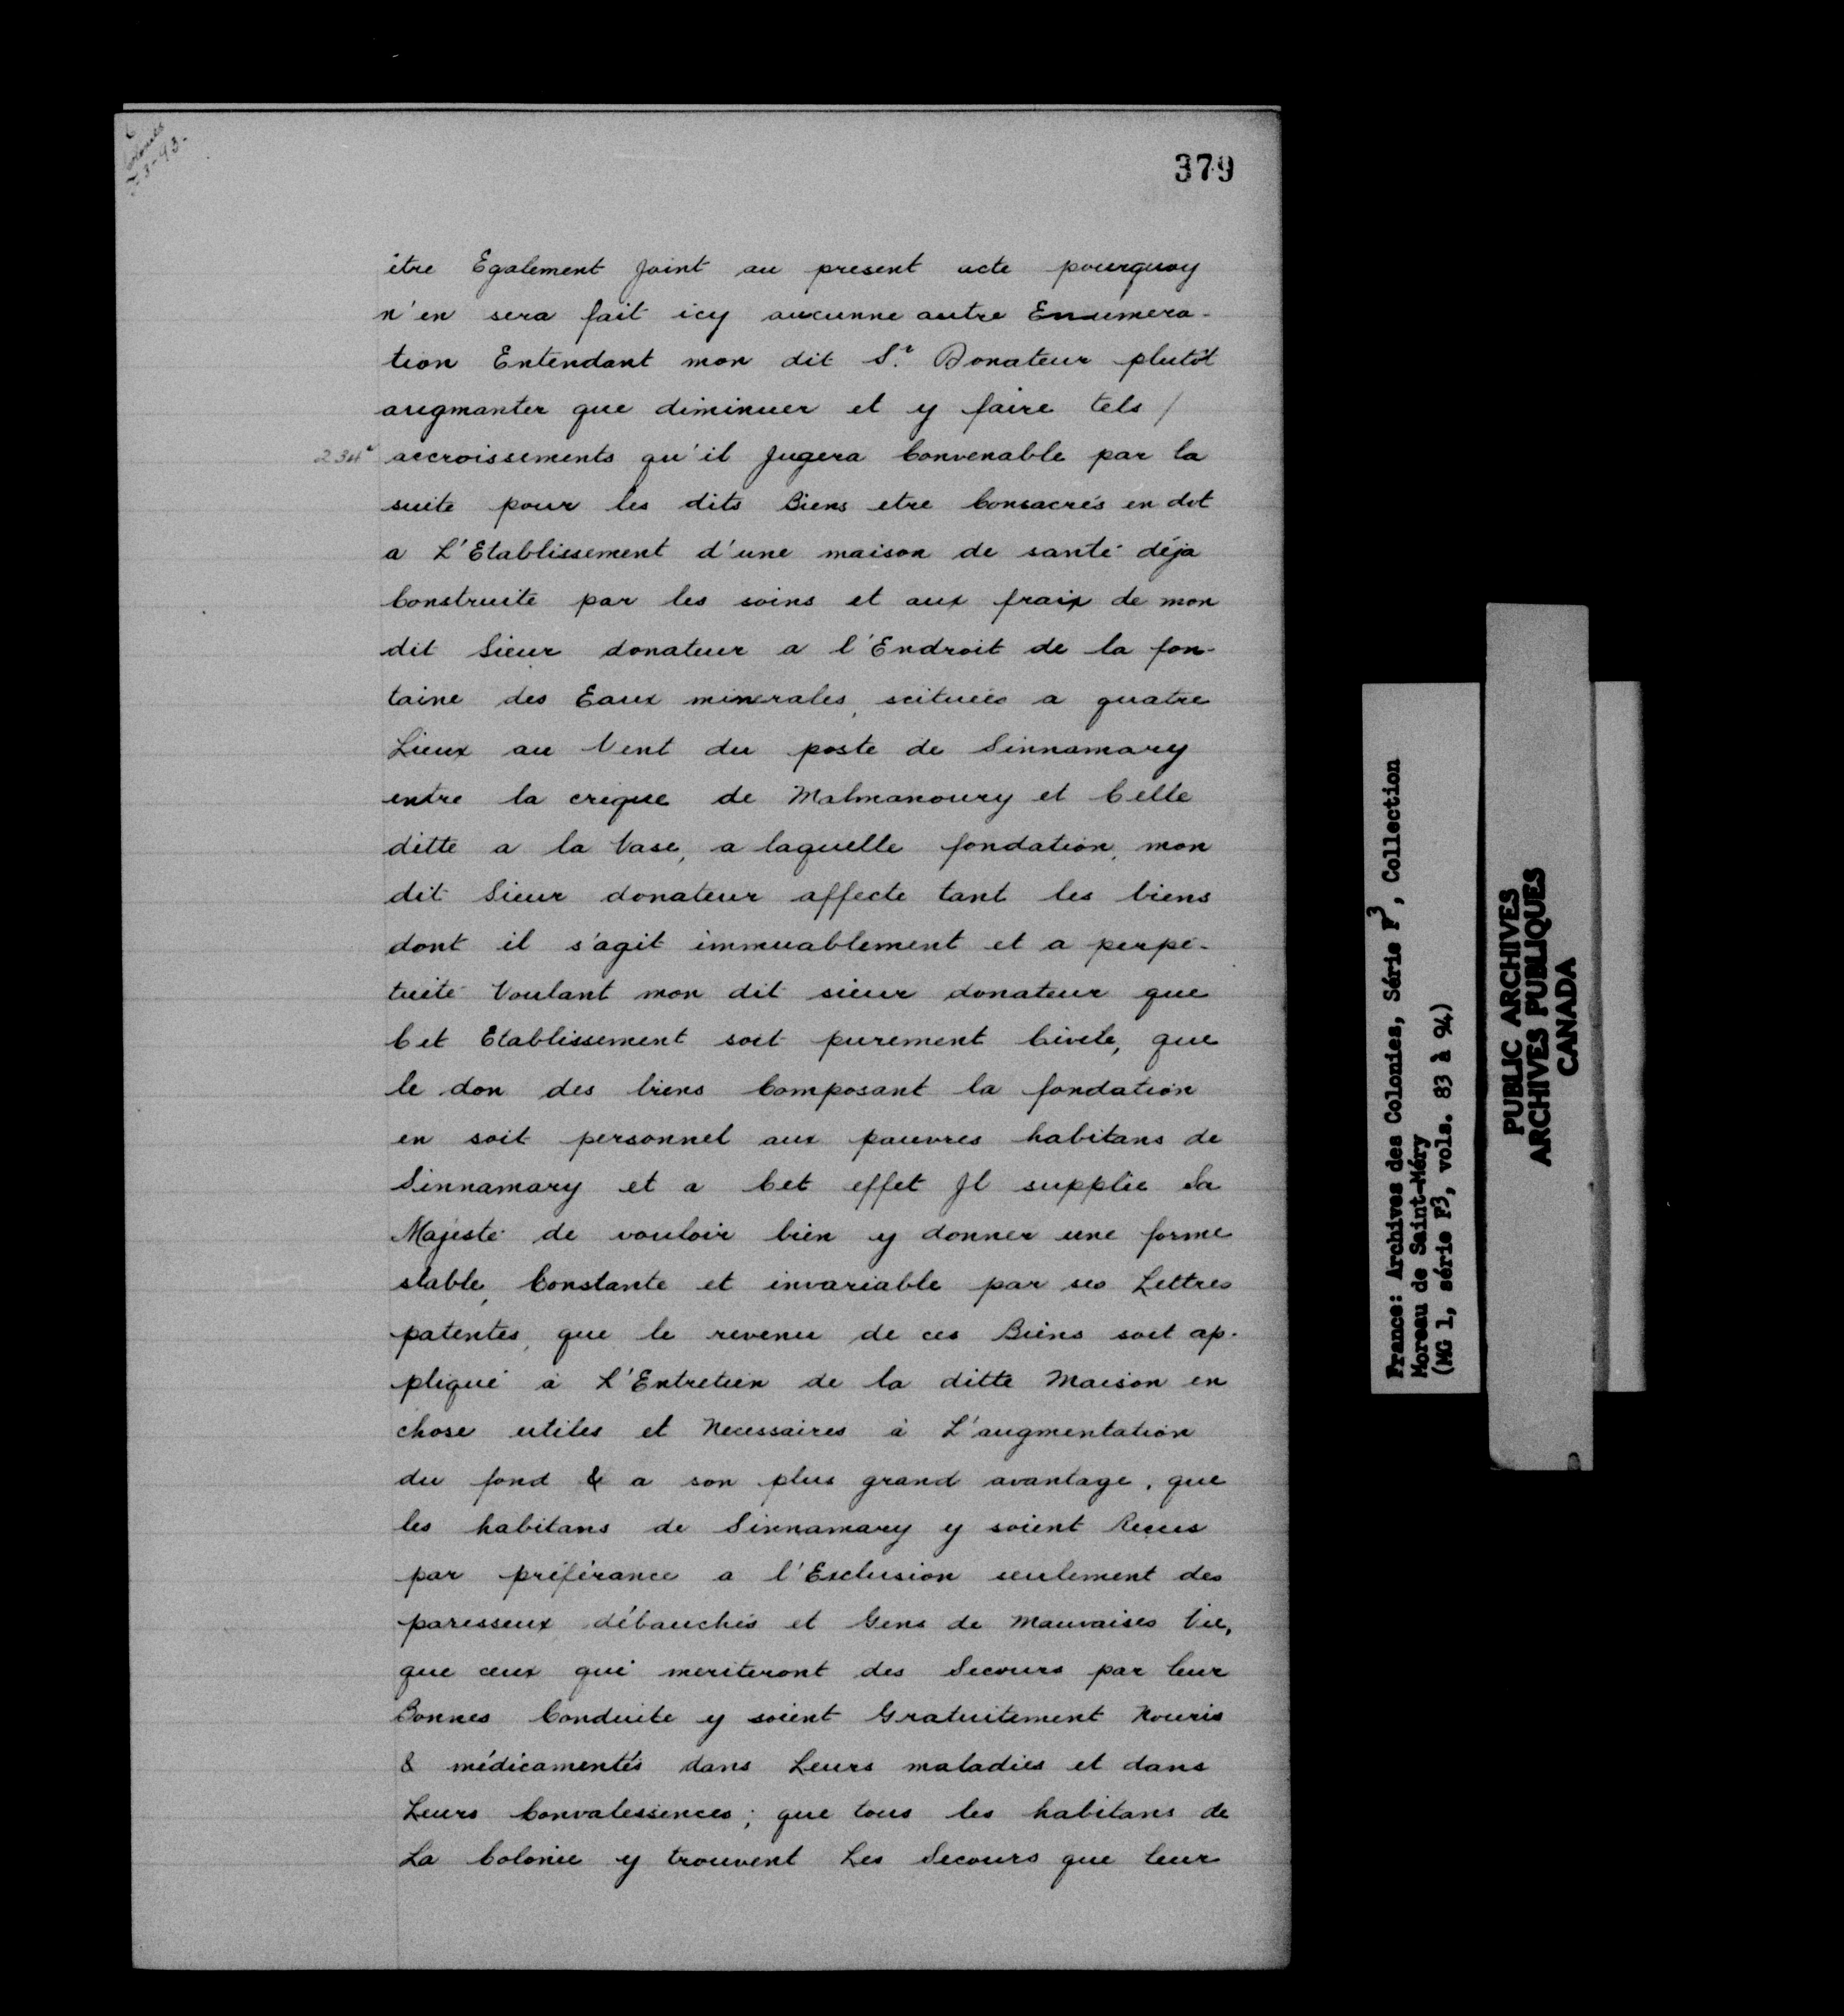 Colonies
F3-93-
379
être Egalement Joint au present acte pourquoy
n'en sera fait icy aucunne autre Enumera-
tion Entendant mon dit Sr. Donateur plutôt
augmanter que diminuer et y faire tels /
234v accroissements qu'il Jugera Convenable par la
suite pour les dits Biens etre Consacrés en dot
a L'Etablissement d'une maison de santé déja
Construite par les soins et aux fraix de mon
dit Sieur donateur a l'Endroit de la fon-
taine des Eaux minerales, scituées a quatre
Lieux au Vent du poste de Sinnamary
entre la crique de Malmanoury et Celle
ditte a la Vase, a laquelle fondation, mon
dit Sieur donateur affecte tant les biens
dont il s'agit immuablement et a perpé-
tuité Voulant mon dit sieur donateur que
Cet Etablissement soit purement Civile, que
le don des biens Composant la fondation
en soit personnel aux pauvres habitans de
Sinnamary et a Cet effet Jl supplie Sa
Majesté de vouloir bien y donner une forme
stable, Constante et invariable par ses Lettres
patentes, que le revenu de ces Biens soit ap-
pliqué à L'Entretien de la ditte Maison en
chose utiles et Necessaires à L'augmentation
du fond & a son plus grand avantage, que
les habitans de Sinnamary y soient Reçus
par préférance a l'Exclusion seulement des
paresseux débauchés et Gens de Mauvaises Vie,
que ceux qui meriteront des Secours par leur
Bonnes Conduite y soient Gratuitement Nouris
& médicamentés dans Leurs maladies et dans
Leurs Convalessences; que tous les habitans de
La Colonie y trouvent Les Secours que leur
France: Archives des Colonies, Série F3, Collection
Moreau de Saint-Méry
(MG 1, série F3, vols. 83 à 94)
PUBLIC ARCHIVES
ARCHIVES PUBLIQUES
CANADA